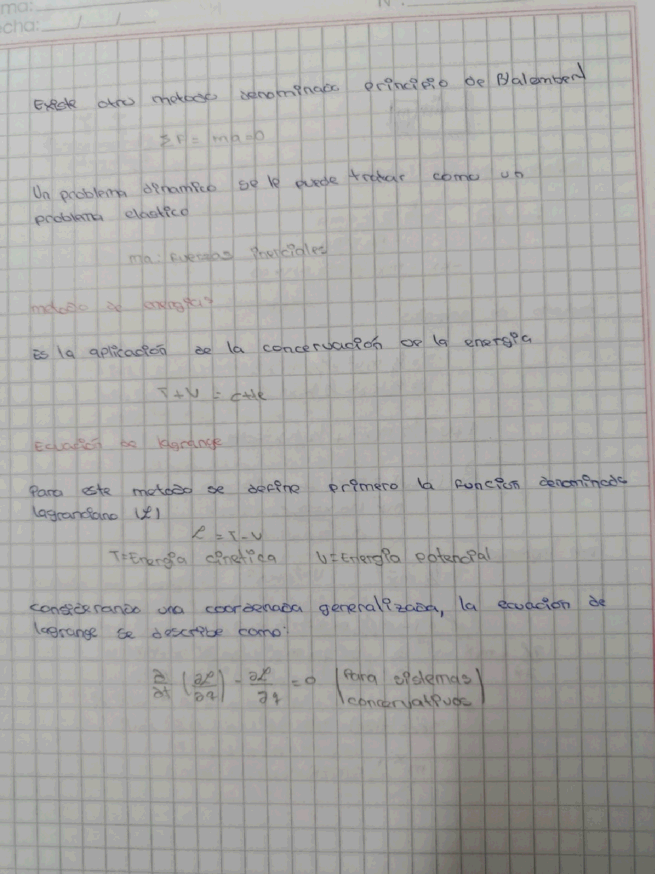 cha: / /
Existe otro metodo denominado principio de D'Alembert
ΣF = ma=0
Un problema dinamico se le puede tratar como un
problema elastico
ma: fuerzas inerciales
metodo de energia
Es la aplicación de la concervación de la energía
T+V = cte
Ecuación de lagrange
Para este metodo se define primero la funcion denominada
lagrangiano (ℒ)
ℒ = T-V
T=Energia cinetica V=Energía potencial
considerando una coordenada generalizada, la ecuacion de
lagrange se describe como:
∂/∂t (∂ℒ/∂q) - ∂ℒ/∂q = 0 (Para sistemas
concervativos)